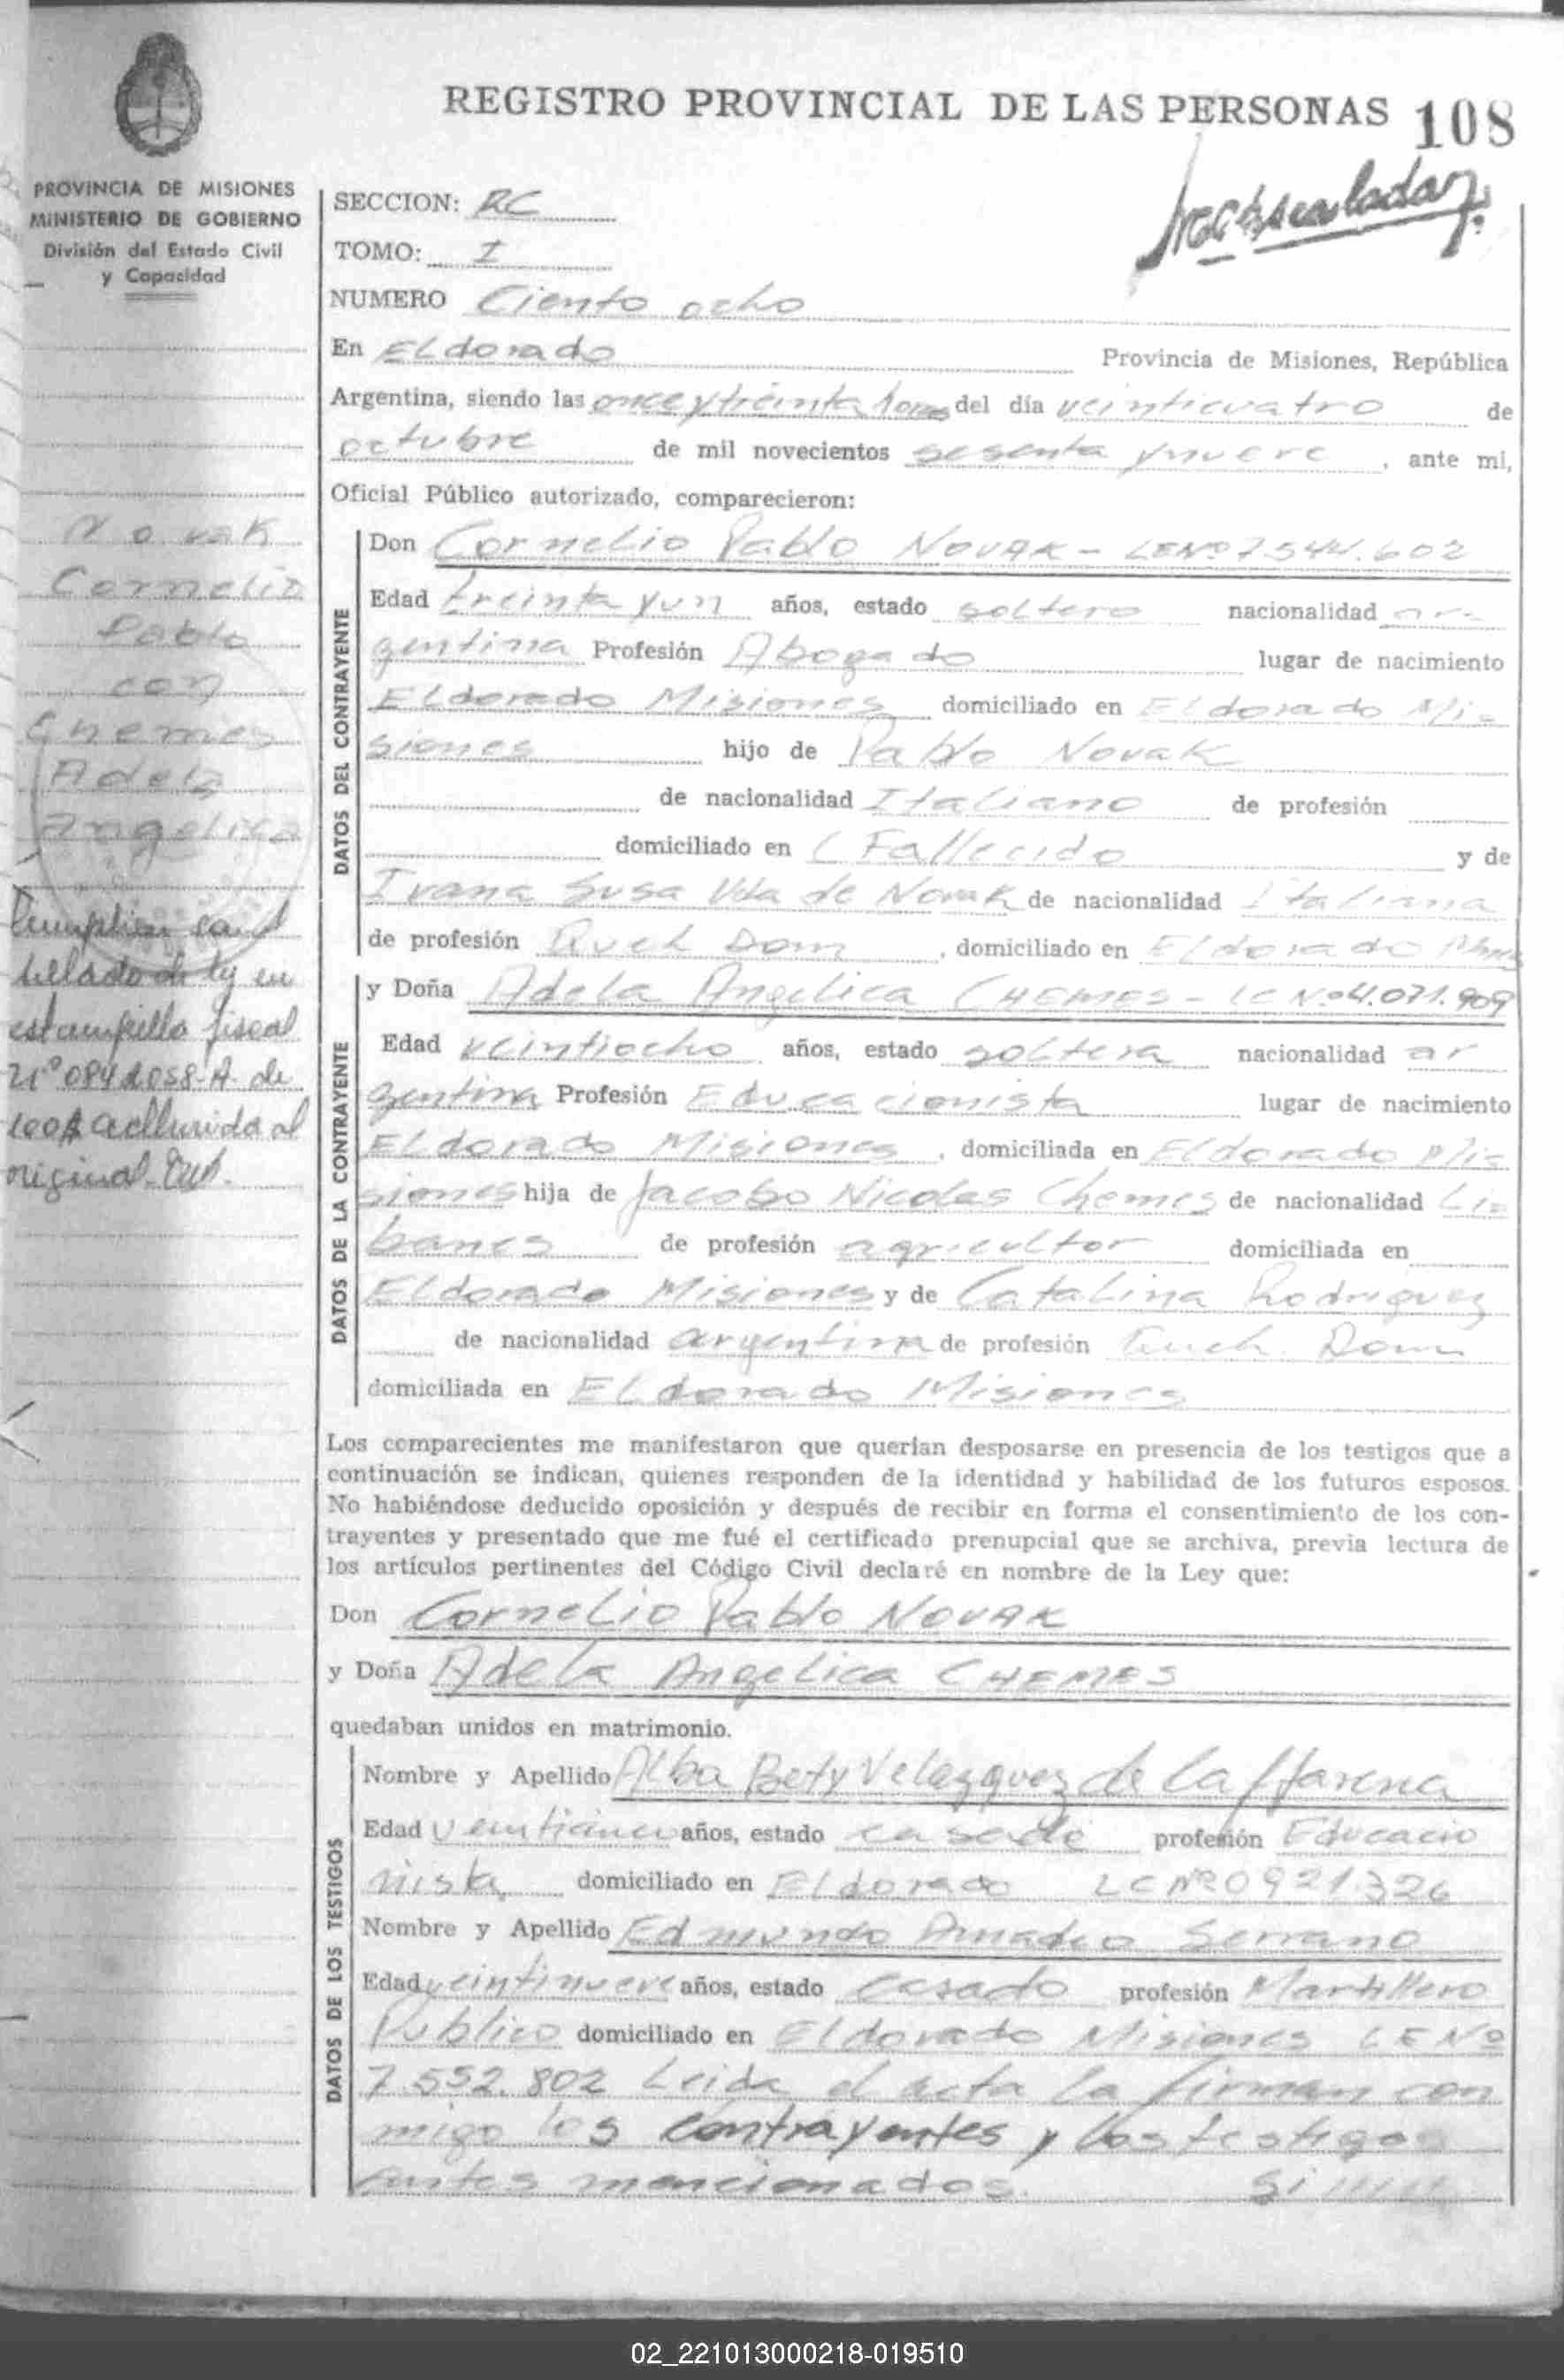 REGISTRO PROVINCIAL DE LAS PERSONAS 108
PROVINCIA DE MISIONES
MINISTERIO DE GOBIERNO
División del Estado Civil
y Capacidad
SECCION: RC
TOMO: I
NUMERO Ciento ocho
En Eldorado Provincia de Misiones, República
Argentina, siendo las once y treinta horas del día veinticuatro de
octubre de mil novecientos sesenta y nueve, ante mi,
Oficial Público autorizado, comparecieron:
Novak
Cornelio
Pablo
con
Chemes
Adela
Angelica
sellado de ley en
estampilla fiscal
adherida al
original
DATOS DEL CONTRAYENTE
Don Cornelio Pablo NOVAK - LE Nº 7.544.602
Edad treinta y un años, estado soltero nacionalidad ar-
gentina Profesión Abogado lugar de nacimiento
Eldorado Misiones domiciliado en Eldorado Mi-
siones hijo de Pablo Novak
de nacionalidad Italiano de profesión
domiciliado en (Fallecido y de
Ivana Susa Vda de Novak de nacionalidad Italiana
de profesión Queh Dom, domiciliado en Eldorado Mnes
DATOS DE LA CONTRAYENTE
y Doña Adela Angelica CHEMES - LC Nº 4.071.909
Edad veintiocho años, estado soltera nacionalidad ar
gentina Profesión Educacionista lugar de nacimiento
Eldorado Misiones, domiciliada en Eldorado Mi-
siones hija de Jacobo Nicolas Chemes de nacionalidad Li-
banes de profesión agricultor domiciliada en
Eldorado Misiones y de Catalina Rodriguez
de nacionalidad argentina de profesión Queh. Dom
domiciliada en Eldorado Misiones
Los comparecientes me manifestaron que querían desposarse en presencia de los testigos que a
continuación se indican, quienes responden de la identidad y habilidad de los futuros esposos.
No habiéndose deducido oposición y después de recibir en forma el consentimiento de los con-
trayentes y presentado que me fué el certificado prenupcial que se archiva, previa lectura de
los artículos pertinentes del Código Civil declaré en nombre de la Ley que:
Don Cornelio Pablo NOVAK
y Doña Adela Angelica CHEMES
quedaban unidos en matrimonio.
DATOS DE LOS TESTIGOS
Nombre y Apellido Alba Bety Velazquez de
Edad años, estado casada profesión Educacio
nista domiciliado en Eldorado LC Nº 0921326
Nombre y Apellido Edmundo Amadeo Serrano
Edad veintinueve años, estado casado profesión Martillero
Publico domiciliado en Eldorado Misiones LE Nº
7.552.802 Leida el acta la firman con
migo los contrayentes y los testigos
antes mencionados.
02_221013000218-019510